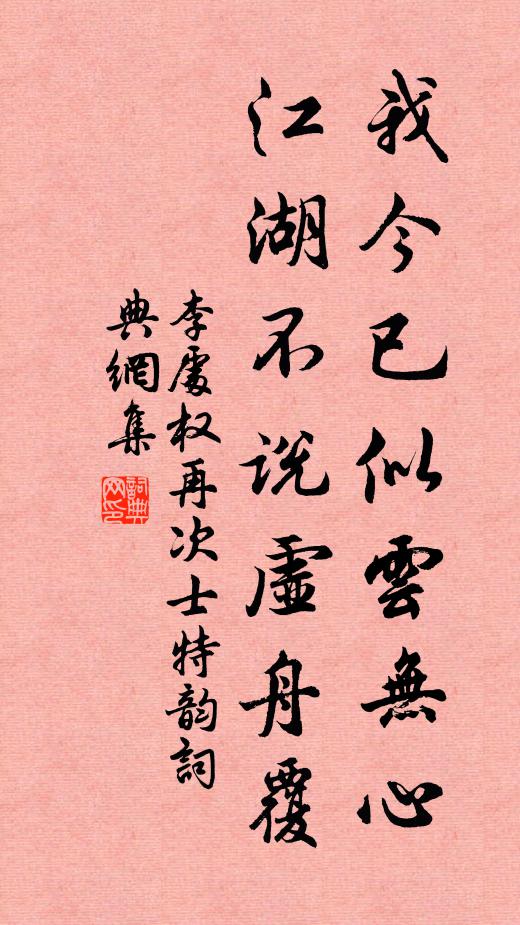 我今已似雲無心
江湖不說虛舟覆
李處权再次士特韵詞
典網集
詞典網印